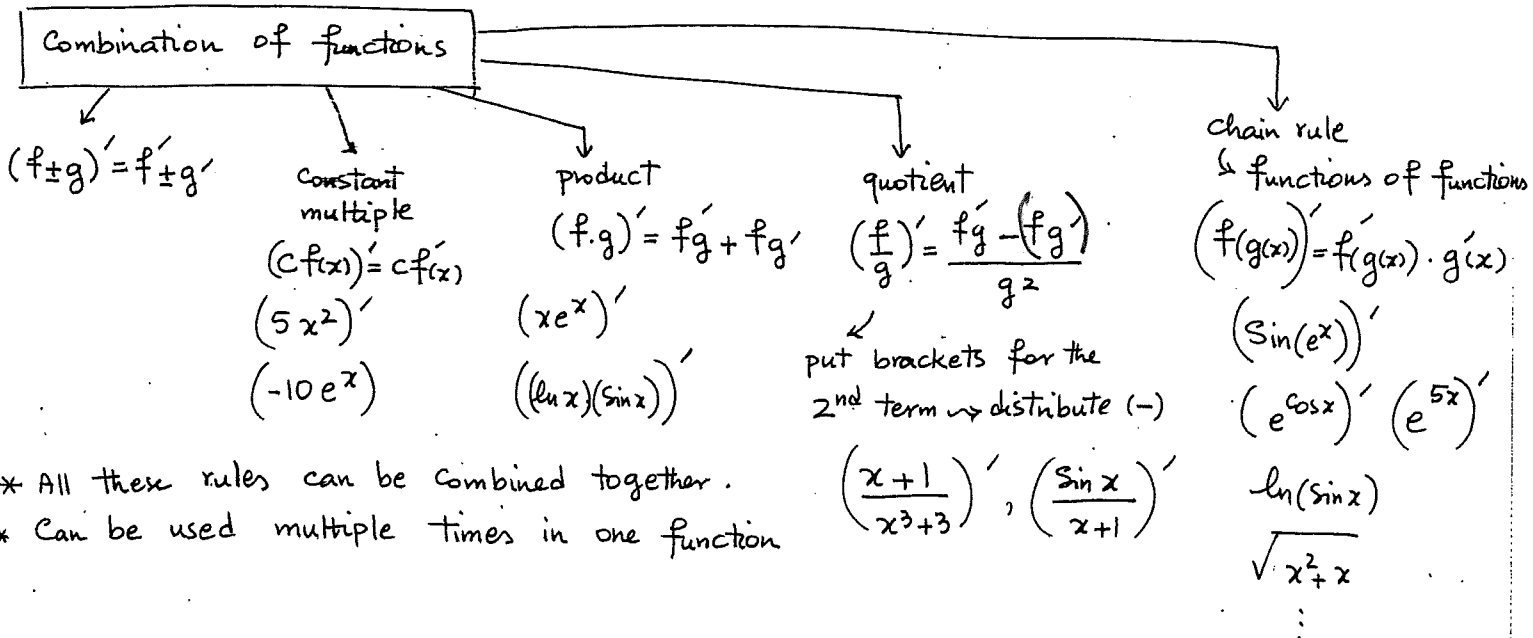 Combination of functions
(f±g)′=f′±g′
Constant
multiple
(cf(x))′=cf′(x)
(5x²)′
(-10eˣ)
product
(f.g)′=f′g+fg′
(xeˣ)′
((ln x)(sin x))′
quotient
(f/g)′=(f′g-(fg′))/g²
put brackets for the
2nd term ⇝ distribute (-)
((x+1)/(x³+3))′, (sin x/(x+1))′
chain rule
↳ functions of functions
(f(g(x)))′=f′(g(x)).g′(x)
(Sin(eˣ))′
(e^cosx)′ (e^5x)′
ln(sinx)
√(x²+x)
⋮
* All these rules can be combined together.
* Can be used multiple times in one function